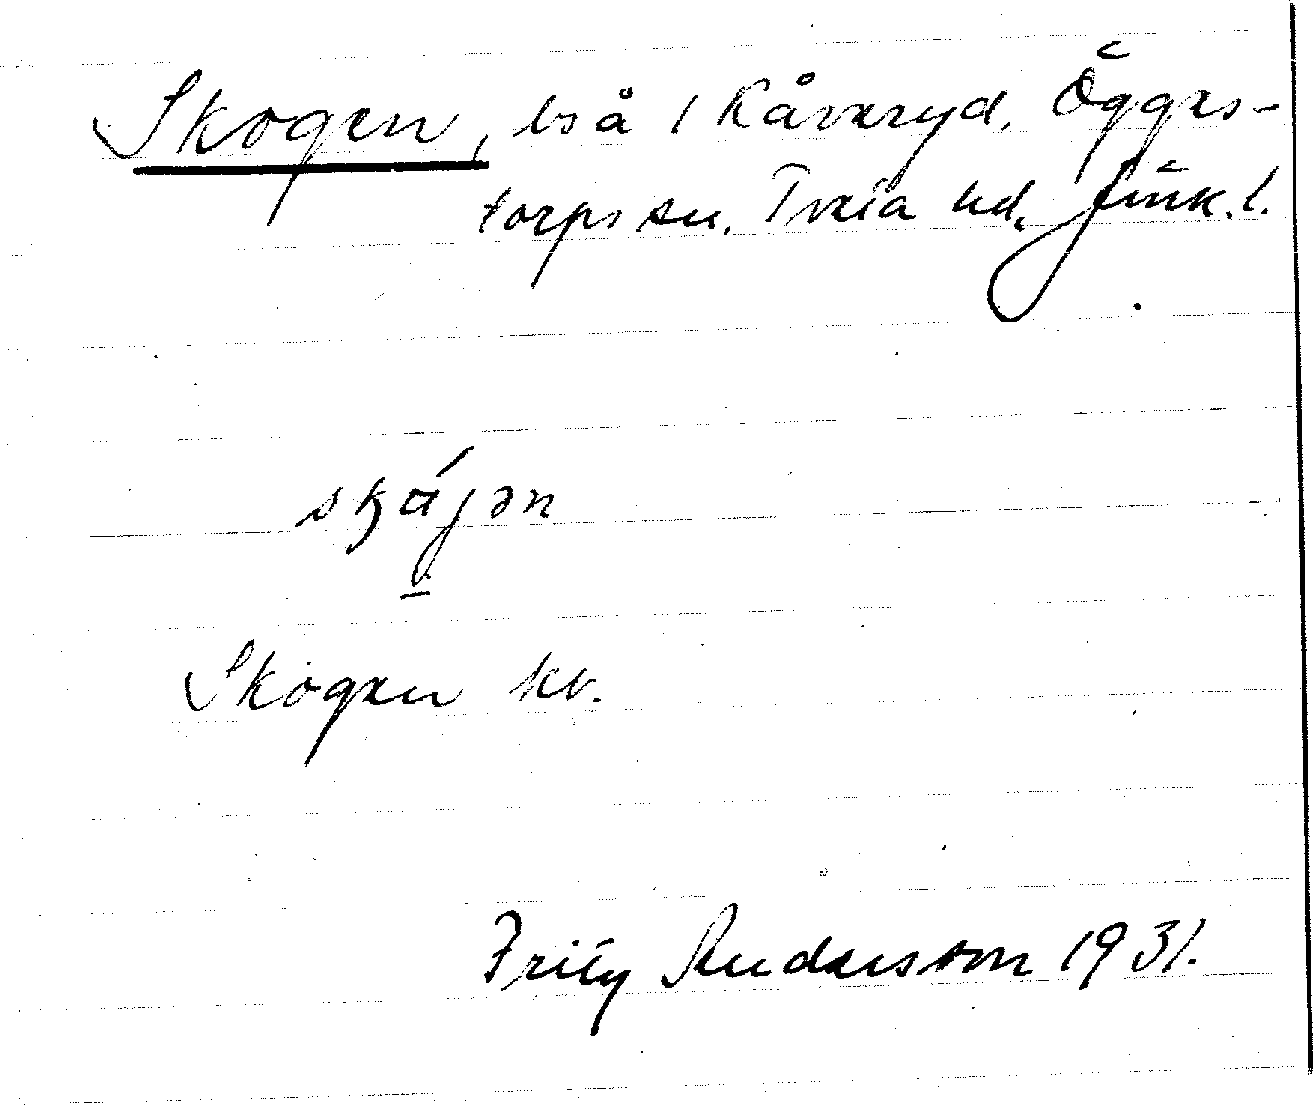 Skogen, bs å / Kåveryd, Ögges-
torps sn. Tveta hd, Jönk. l.
Skogen kv.
Fritz Andersson 1931.